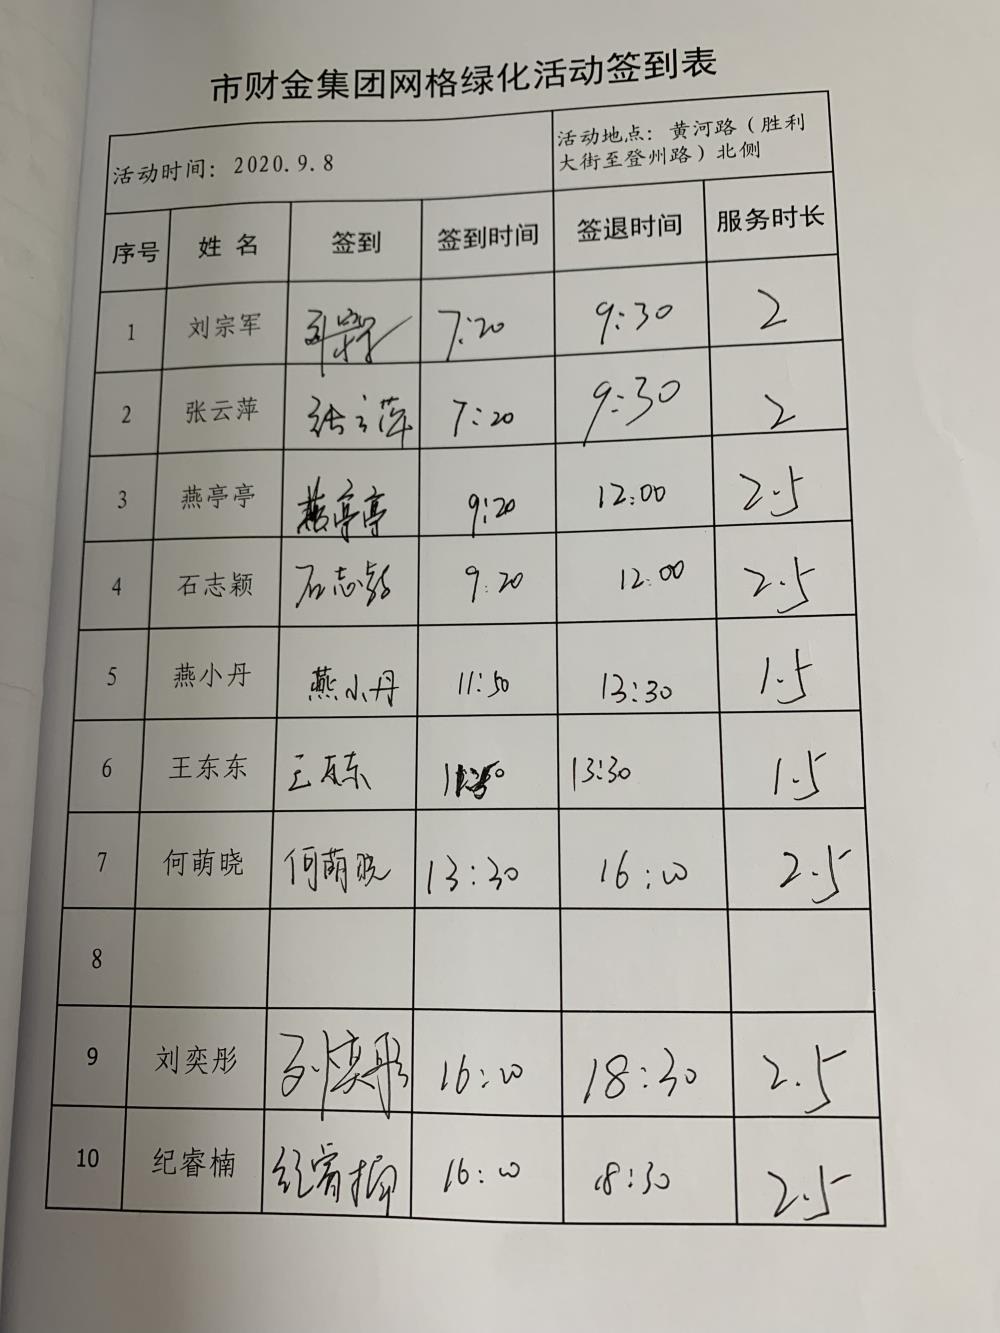 市财金集团网格绿化活动签到表
活动时间：2020.9.8
活动地点：黄河路（胜利
大街至登州路）北侧
序号 姓 名 签到 签到时间 签退时间 服务时长
1 刘宗军 刘宗军 7:20 9:30 2
2 张云萍 张云萍 7:20 9:30 2
3 燕亭亭 燕亭亭 9:20 12:00 2.5
4 石志颖 石志颖 9:20 12:00 2.5
5 燕小丹 燕小丹 11:50 13:30 1.5
6 王东东 王东东 11:50 13:30 1.5
7 何萌晓 何萌晓 13:30 16:00 2.5
8
9 刘奕彤 刘奕彤 16:00 18:30 2.5
10 纪睿楠 纪睿楠 16:00 18:30 2.5